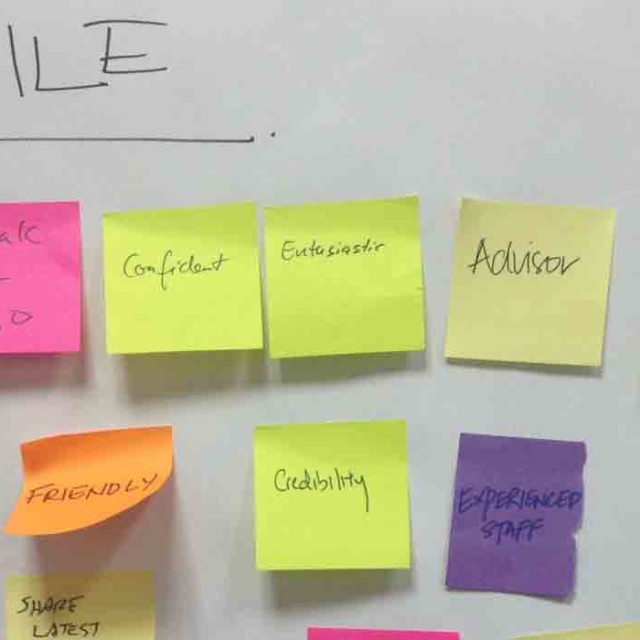 ILE
Confident
Entusiastic
Advisor
FRIENDLY
Credibility
EXPERIENCED
STAFF
SHARE
LATEST